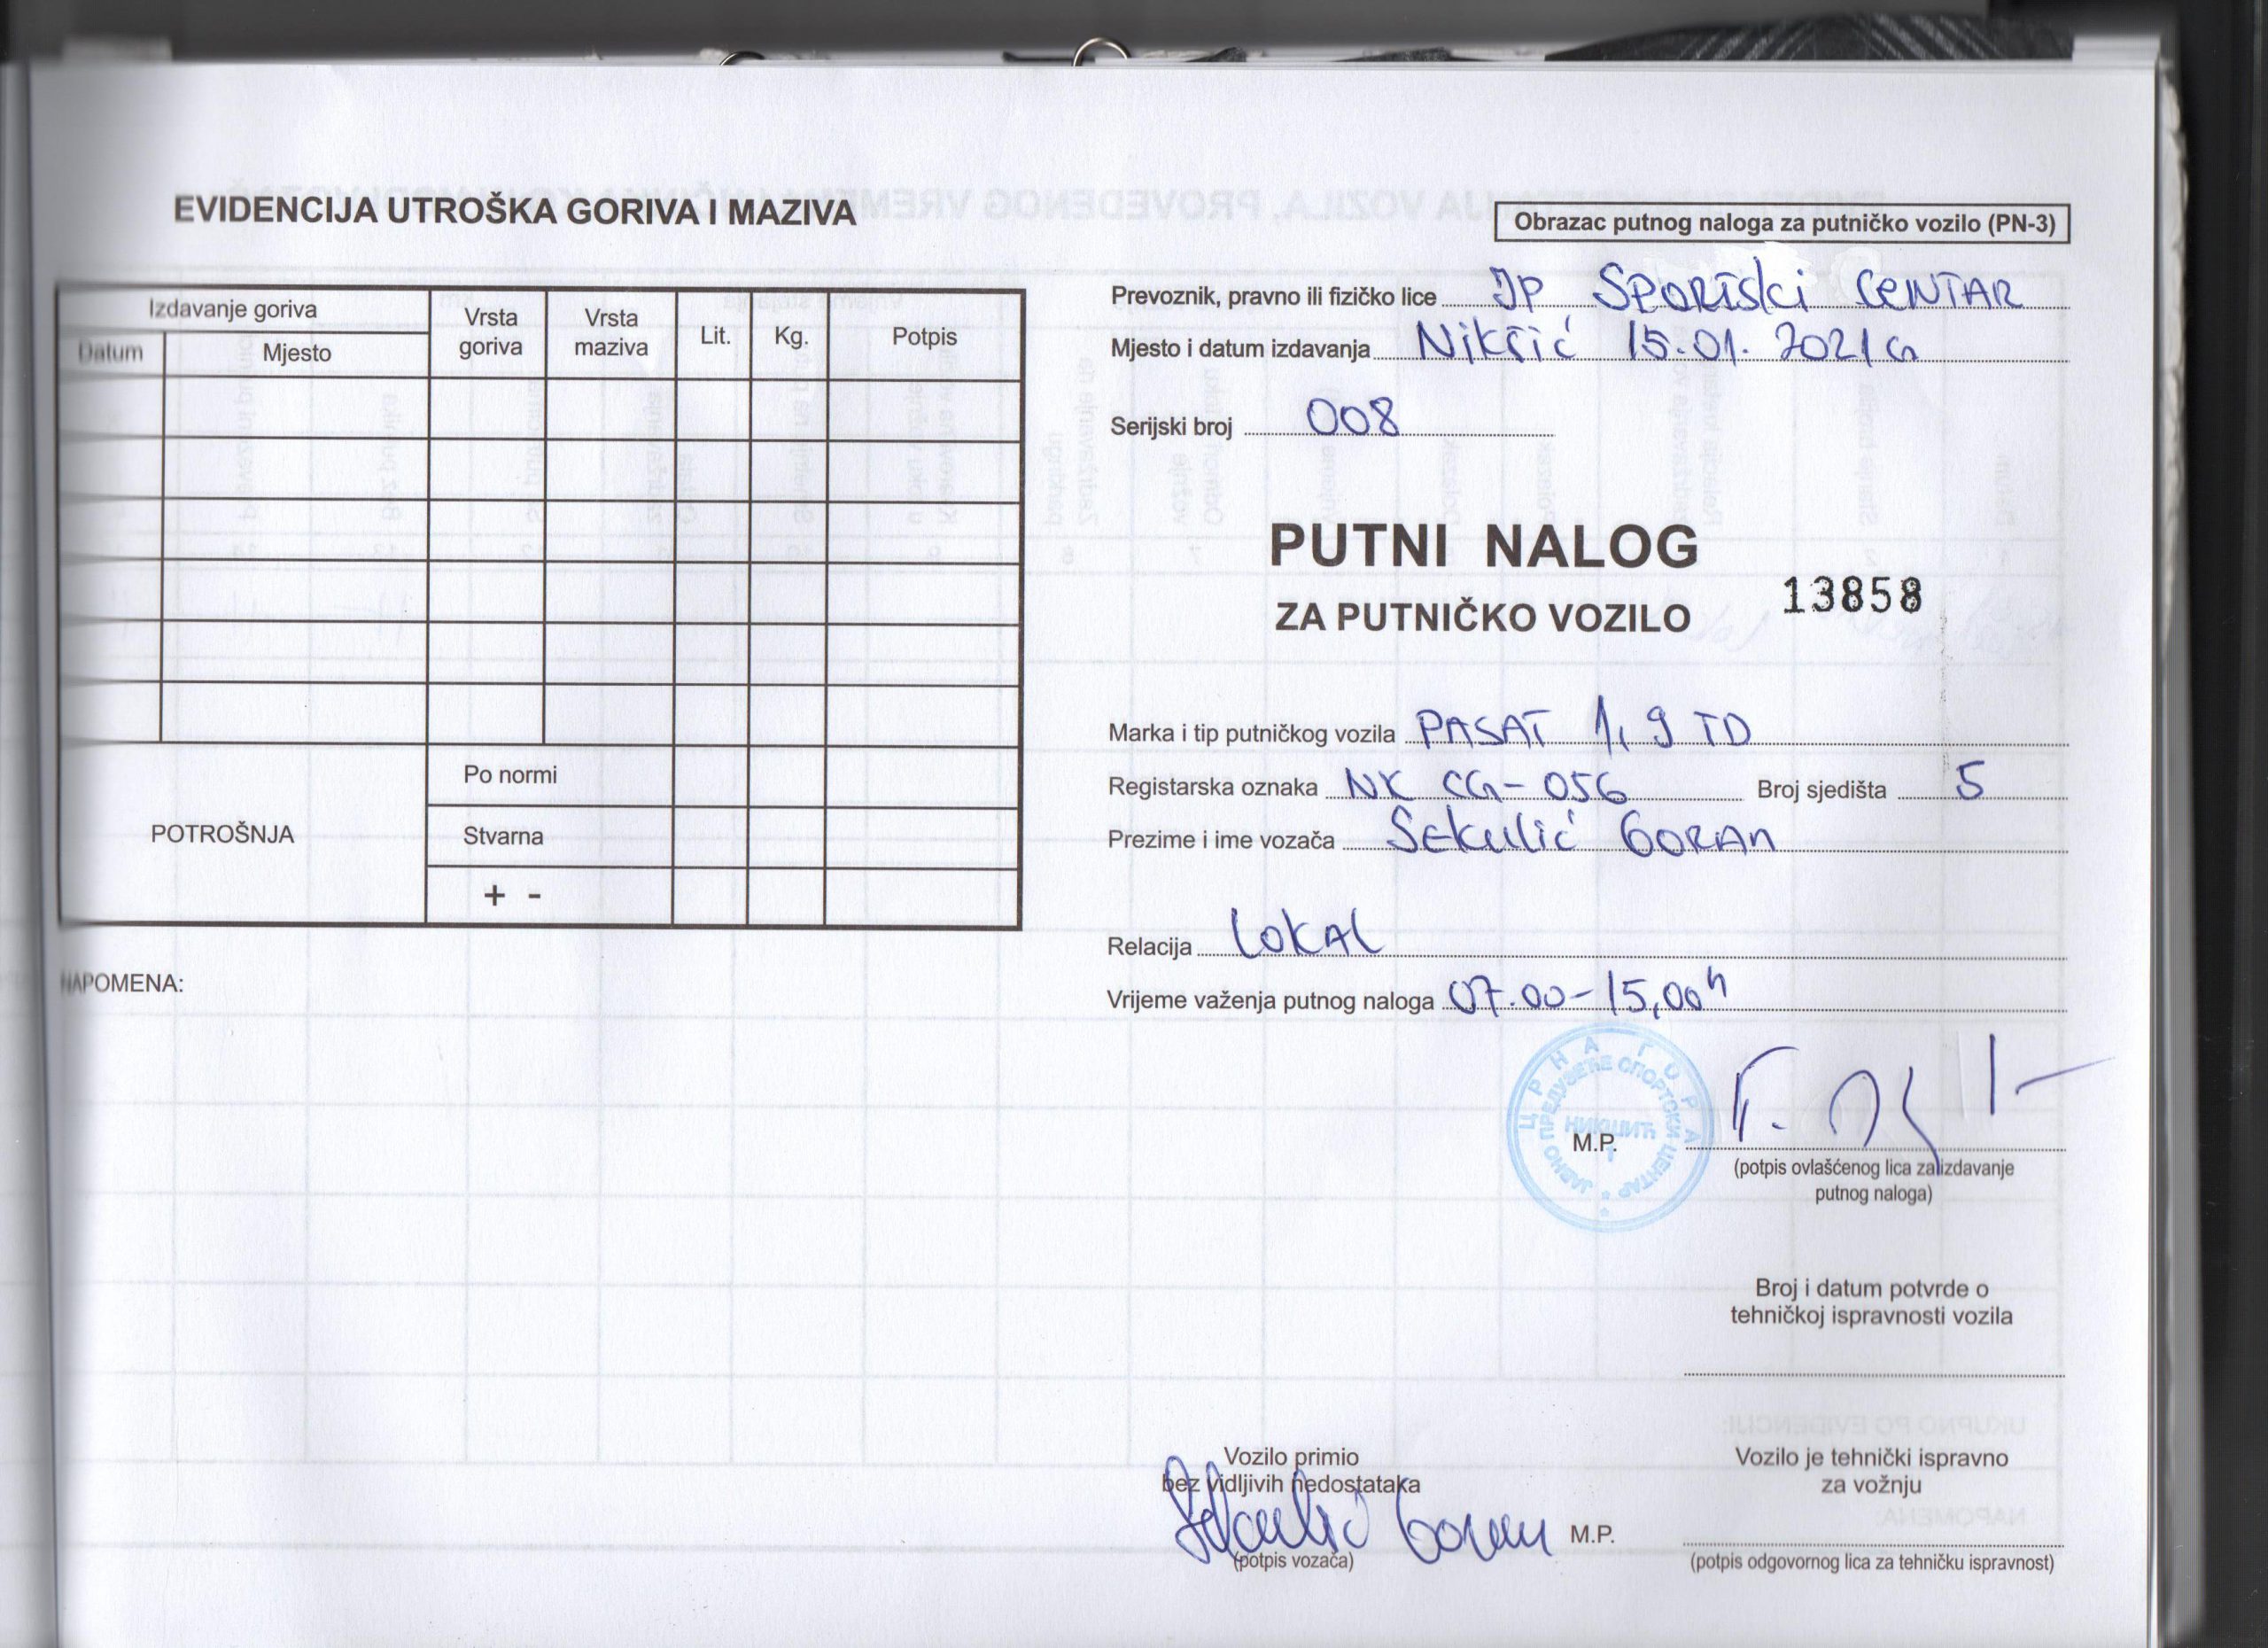 EVIDENCIJA UTROŠKA GORIVA I MAZIVA
Izdavanje goriva
Datum
Mjesto
Vrsta goriva
Vrsta maziva
Lit.
Kg.
Potpis
POTROŠNJA
Po normi
Stvarna
+ -
NAPOMENA:
Obrazac putnog naloga za putničko vozilo (PN-3)
Prevoznik, pravno ili fizičko lice JP SPORTSKI CENTAR
Mjesto i datum izdavanja Nikšić 15.01.2021 G
Serijski broj 008
PUTNI NALOG
ZA PUTNIČKO VOZILO 13858
Marka i tip putničkog vozila PASAT 1,9 TD
Registarska oznaka NK CG-056 Broj sjedišta 5
Prezime i ime vozača Sekulić GORAN
Relacija LOKAL
Vrijeme važenja putnog naloga 07.00-15,00 h
ЦРНА ГОРА
ЈАВНО ПРЕДУЗЕЋЕ СПОРТСКИ ЦЕНТАР
НИКШИЋ
1
M.P.
(potpis ovlašćenog lica za izdavanje
putnog naloga)
Broj i datum potvrde o
tehničkoj ispravnosti vozila
Vozilo primio
bez vidljivih nedostataka
Sekulić Goran
(potpis vozača)
M.P.
Vozilo je tehnički ispravno
za vožnju
(potpis odgovornog lica za tehničku ispravnost)